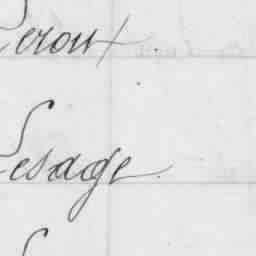 Leroux
Lesage